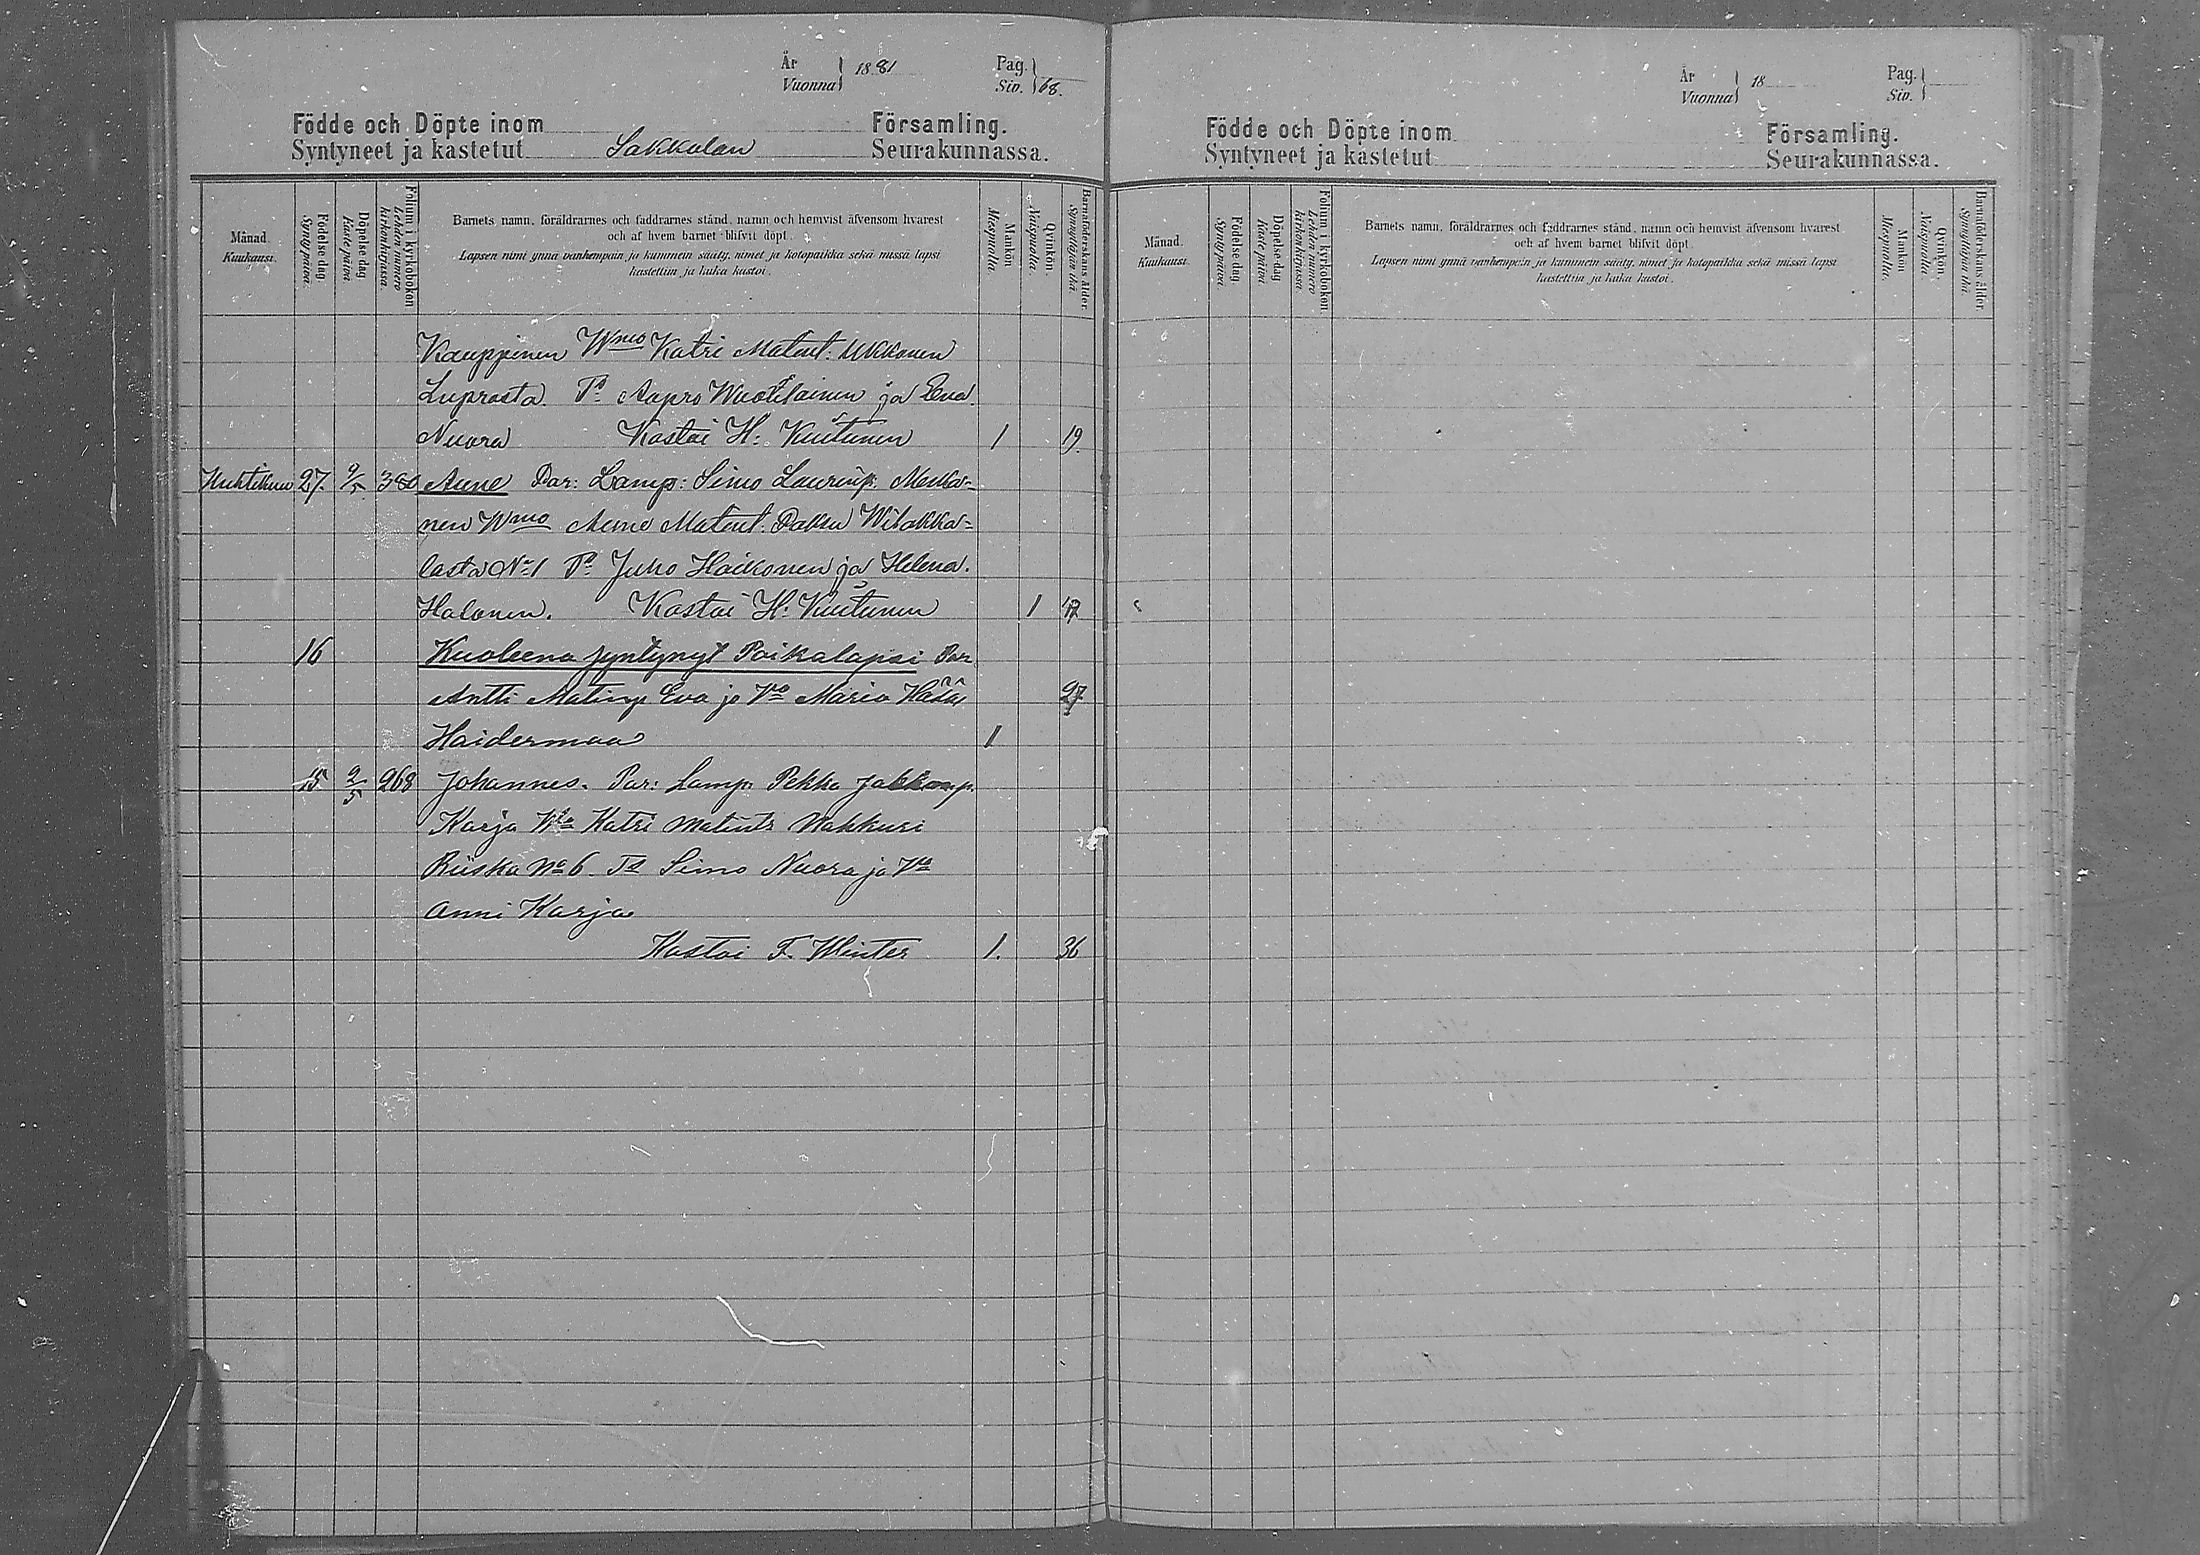 År
Vuonna } 1881
Pag.
Siv. } 68.
Födde och Döpte inom Församling.
Syntyneet ja kastetut Sakkolan Seurakunnassa.
Månad. Kuukausi.
Födelse-dag. Syntypäivä.
Döpelse-dag. Kastepäivä.
Folium i kyrkoboken. Lehden numero kirkonkirjassa.
Barnets namn, föräldrarnes och faddrarnes stånd, namn och hemvist äfvensom hvarest
och af hvem barnet blifvit döpt.
Lapsen nimi ynnä vanhempain ja kummein sääty, nimet ja kotopaikka sekä missä lapsi
kastettiin ja kuka kastoi.
Mankön. Miespuolia.
Qvinkön. Naispuolia.
Barnaföderskans ålder. Synnyttäjän ikä.
Kauppinen Wmo Katri Matint: Ukkonen
Luprasta. Ts Aapro Wuotilainen ja Eva
Nuora Kastoi H: Kuutunen 1 19.
Huhtikuu 27. 9/5 380 Anne Par: Lamp: Simo Laurinp: Meska=
nen Wmo Anna Matint: Paksu Wilakka=
lasta No 1 Ts Juho Haikonen ja Helena
Halonen. Kastoi H: Kuutunen 1 47
16 Kuoleena syntynyt Poikalapsi Par
Antti Matinp Eva ja Vo Maria 27
Haidermaa 1
15 2/5 268 Johannes. Par: Lamp. Pekka Jakkonp.
Karja Wo Katri Matintr Nahkuri
Riiska No 6. Ts Simo Nuora ja Vo
Anni Karja
Kastoi F. Winter 1. 36
År
Vuonna } 18
Pag.
Siv. }
Födde och Döpte inom Församling.
Syntyneet ja kastetut Seurakunnassa.
Månad. Kuukausi.
Födelse-dag. Syntypäivä.
Döpelse-dag. Kastepäivä.
Folium i kyrkoboken. Lehden numero kirkonkirjassa.
Barnets namn, föräldrarnes och faddrarnes stånd, namn och hemvist äfvensom hvarest
och af hvem barnet blifvit döpt.
Lapsen nimi ynnä vanhempain ja kummein sääty, nimet ja kotopaikka sekä missä lapsi
kastettiin ja kuka kastoi.
Mankön. Miespuolia.
Qvinkön. Naispuolia.
Barnaföderskans ålder. Synnyttäjän ikä.